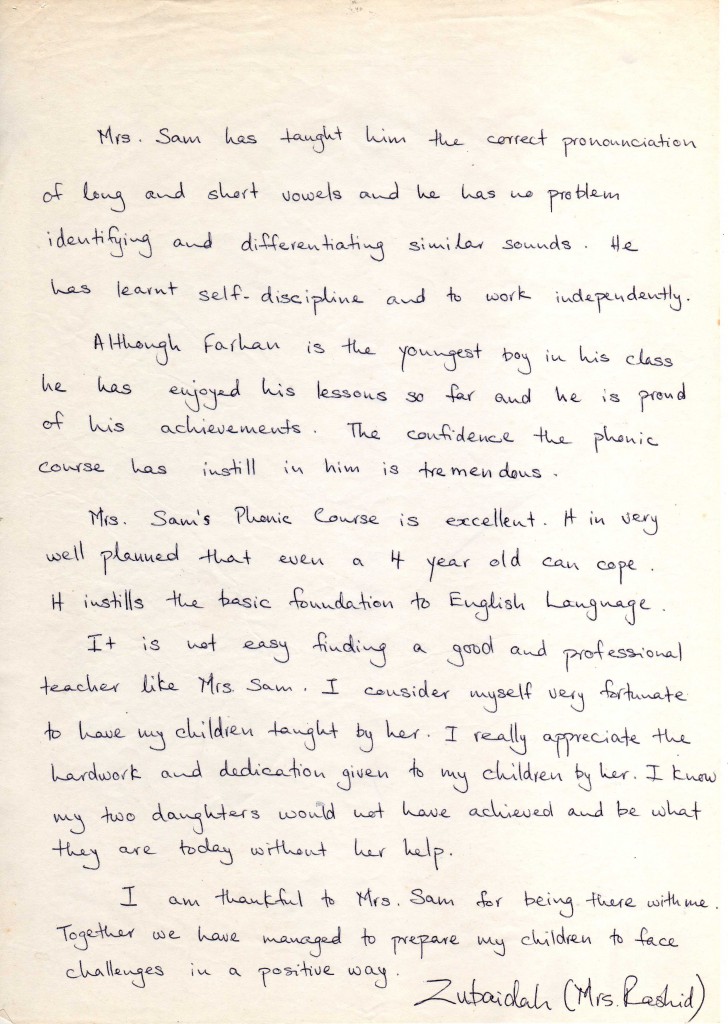 Mrs. Sam has taught him the correct pronounciation
of long and short vowels and he has no problem
identifying and differentiating similar sounds. He
has learnt self-discipline and to work independently.
Although Farhan is the youngest boy in his class
he has enjoyed his lessons so far and he is proud
of his achievements. The confidence the phonic
course has instill in him is tremendous.
Mrs. Sam's Phonic Course is excellent. It in very
well planned that even a 4 year old can cope.
It instills the basic foundation to English Language.
It is not easy finding a good and professional
teacher like Mrs. Sam. I consider myself very fortunate
to have my children taught by her. I really appreciate the
hardwork and dedication given to my children by her. I know
my two daughters would not have achieved and be what
they are today without her help.
I am thankful to Mrs. Sam for being there with me.
Together we have managed to prepare my children to face
challenges in a positive way.
Zubaidah (Mrs. Rashid)